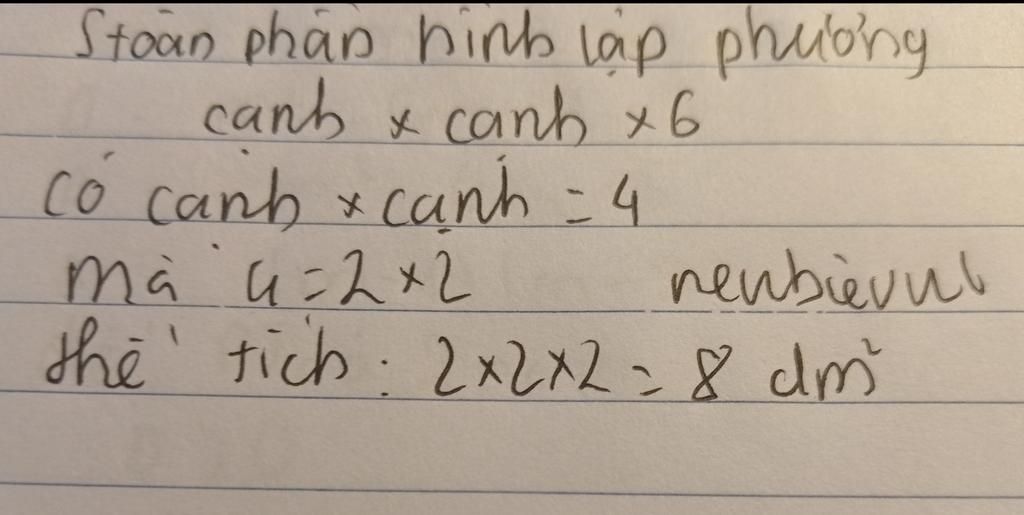 S toàn phần hình lập phương
cạnh x cạnh x 6
có cạnh x cạnh = 4
mà 4 = 2 x 2
thể tích : 2x2x2 = 8 dm²